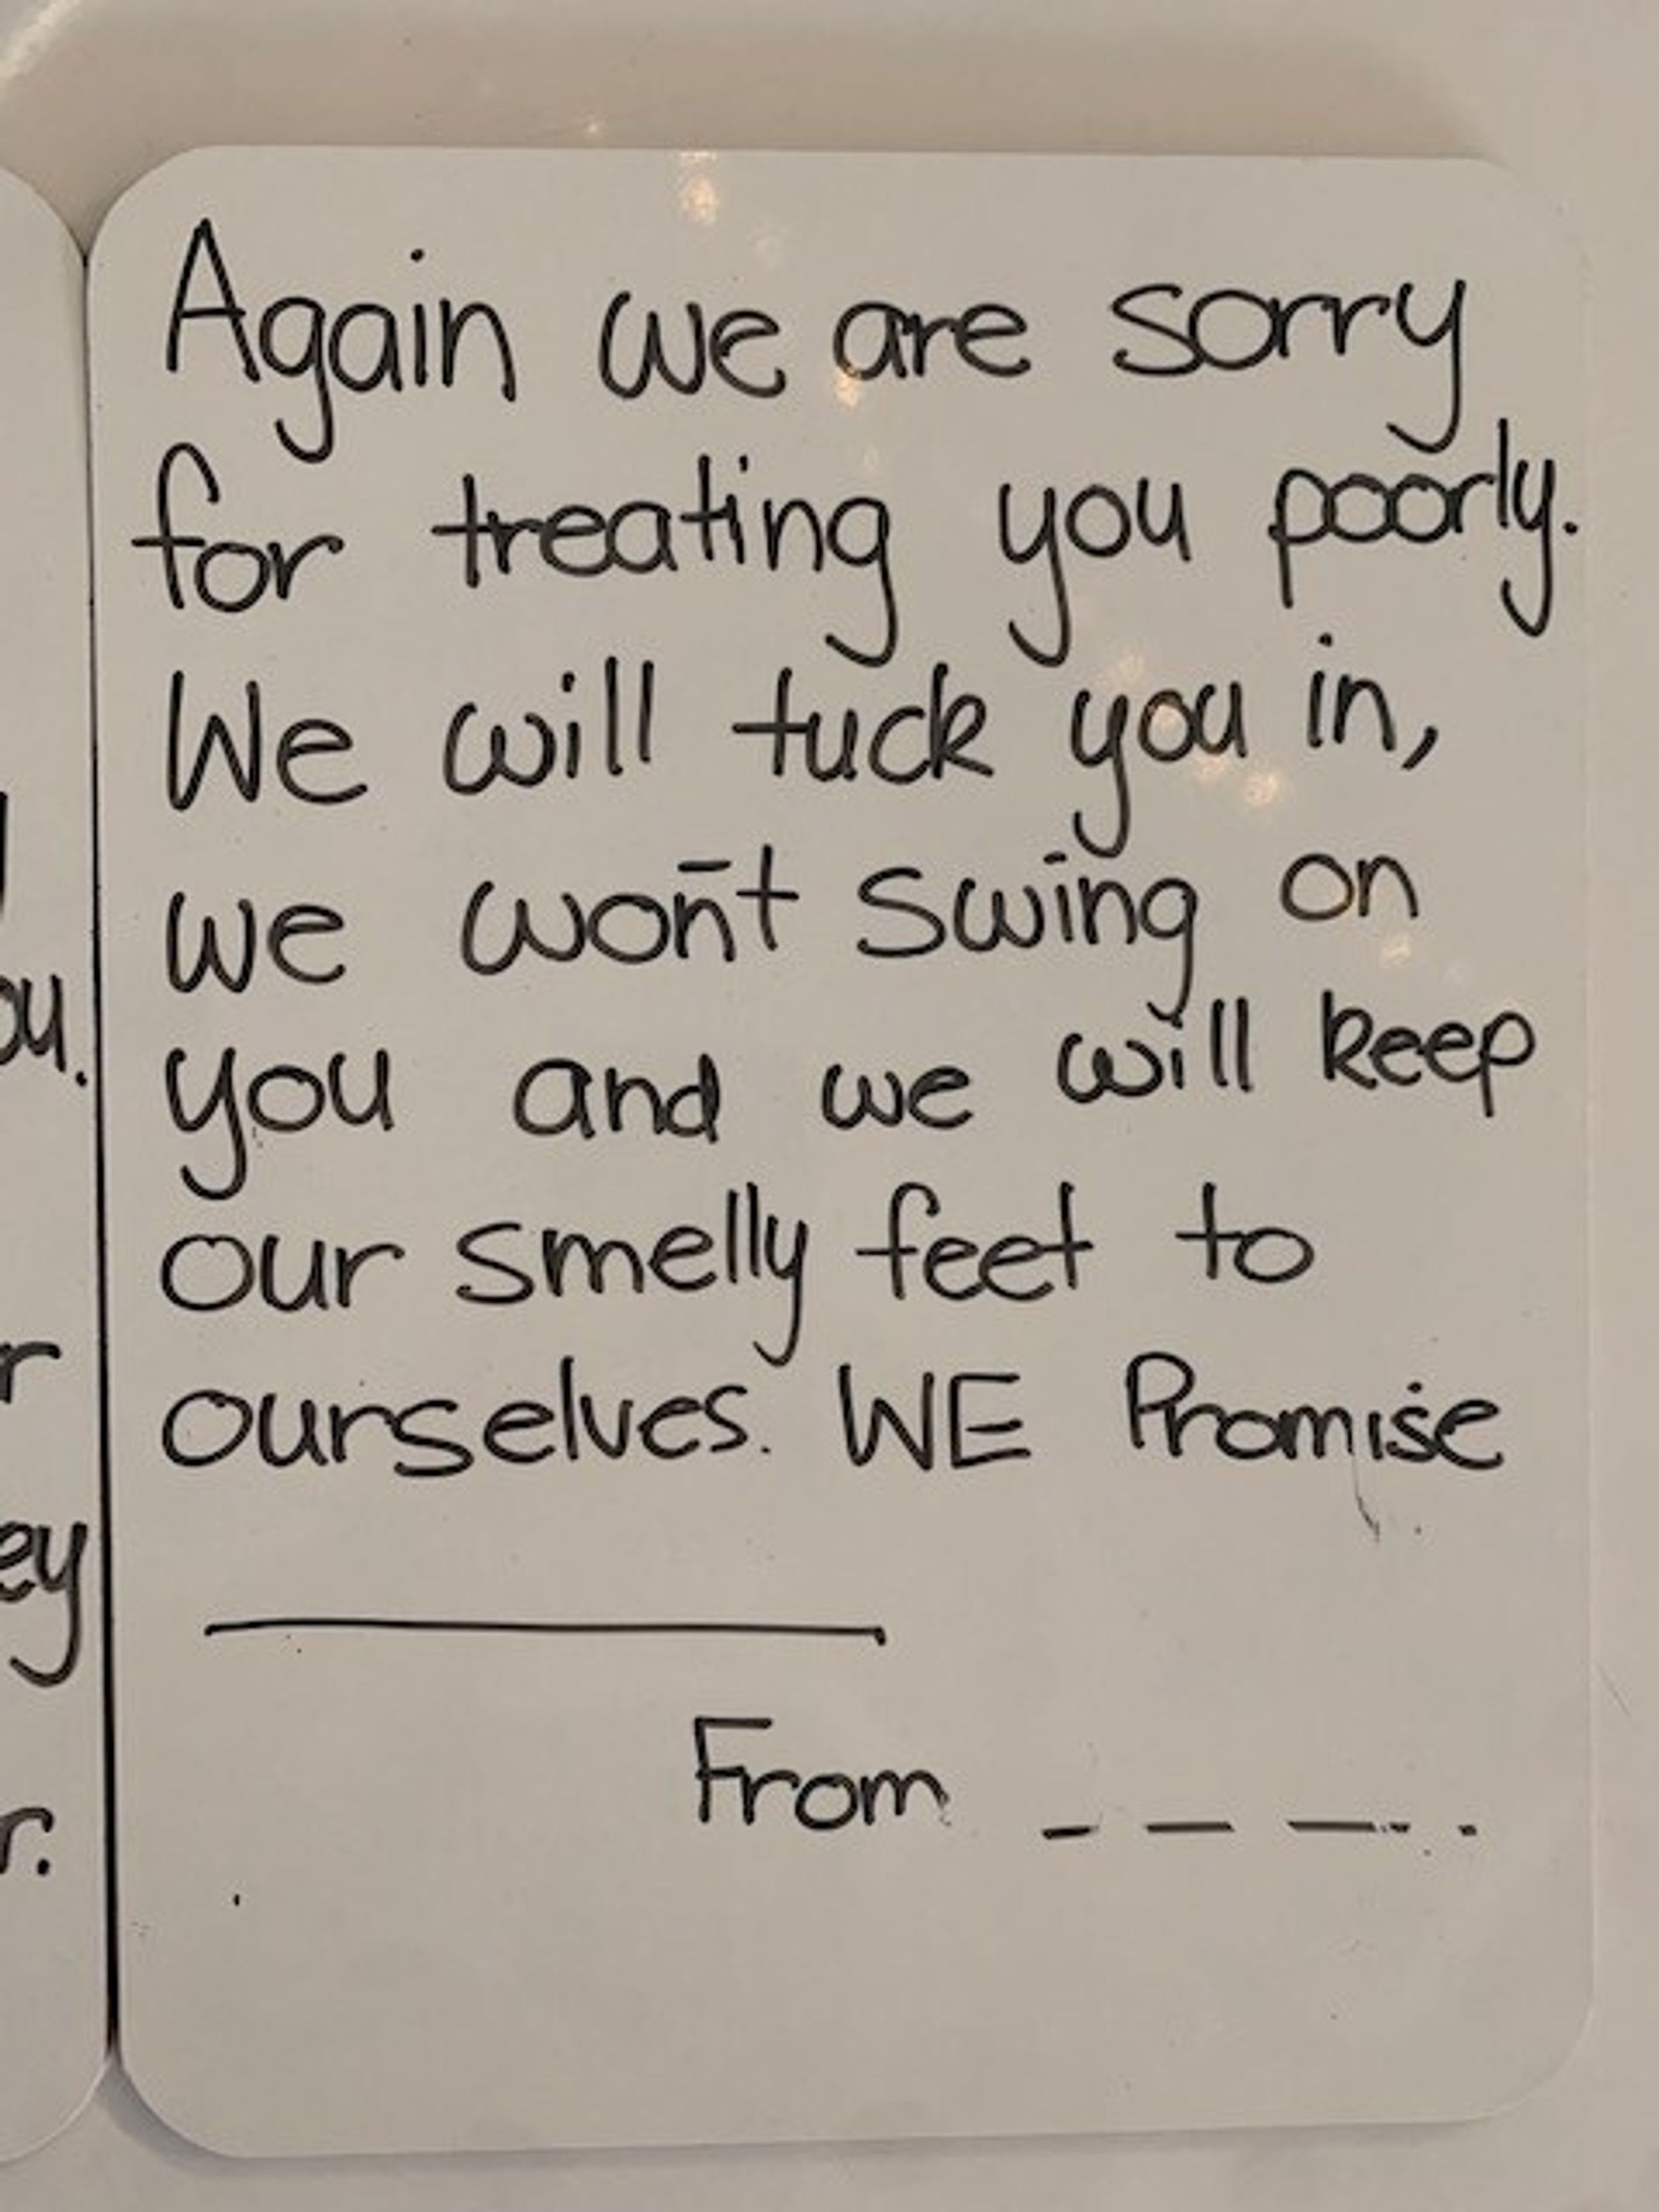 Again we are sorry
for treating you poorly.
We will tuck you in,
we won't swing on
you and we will keep
our smelly feet to
ourselves. WE Promise
From _ _ _ _ .
ou.
r
ey
r.